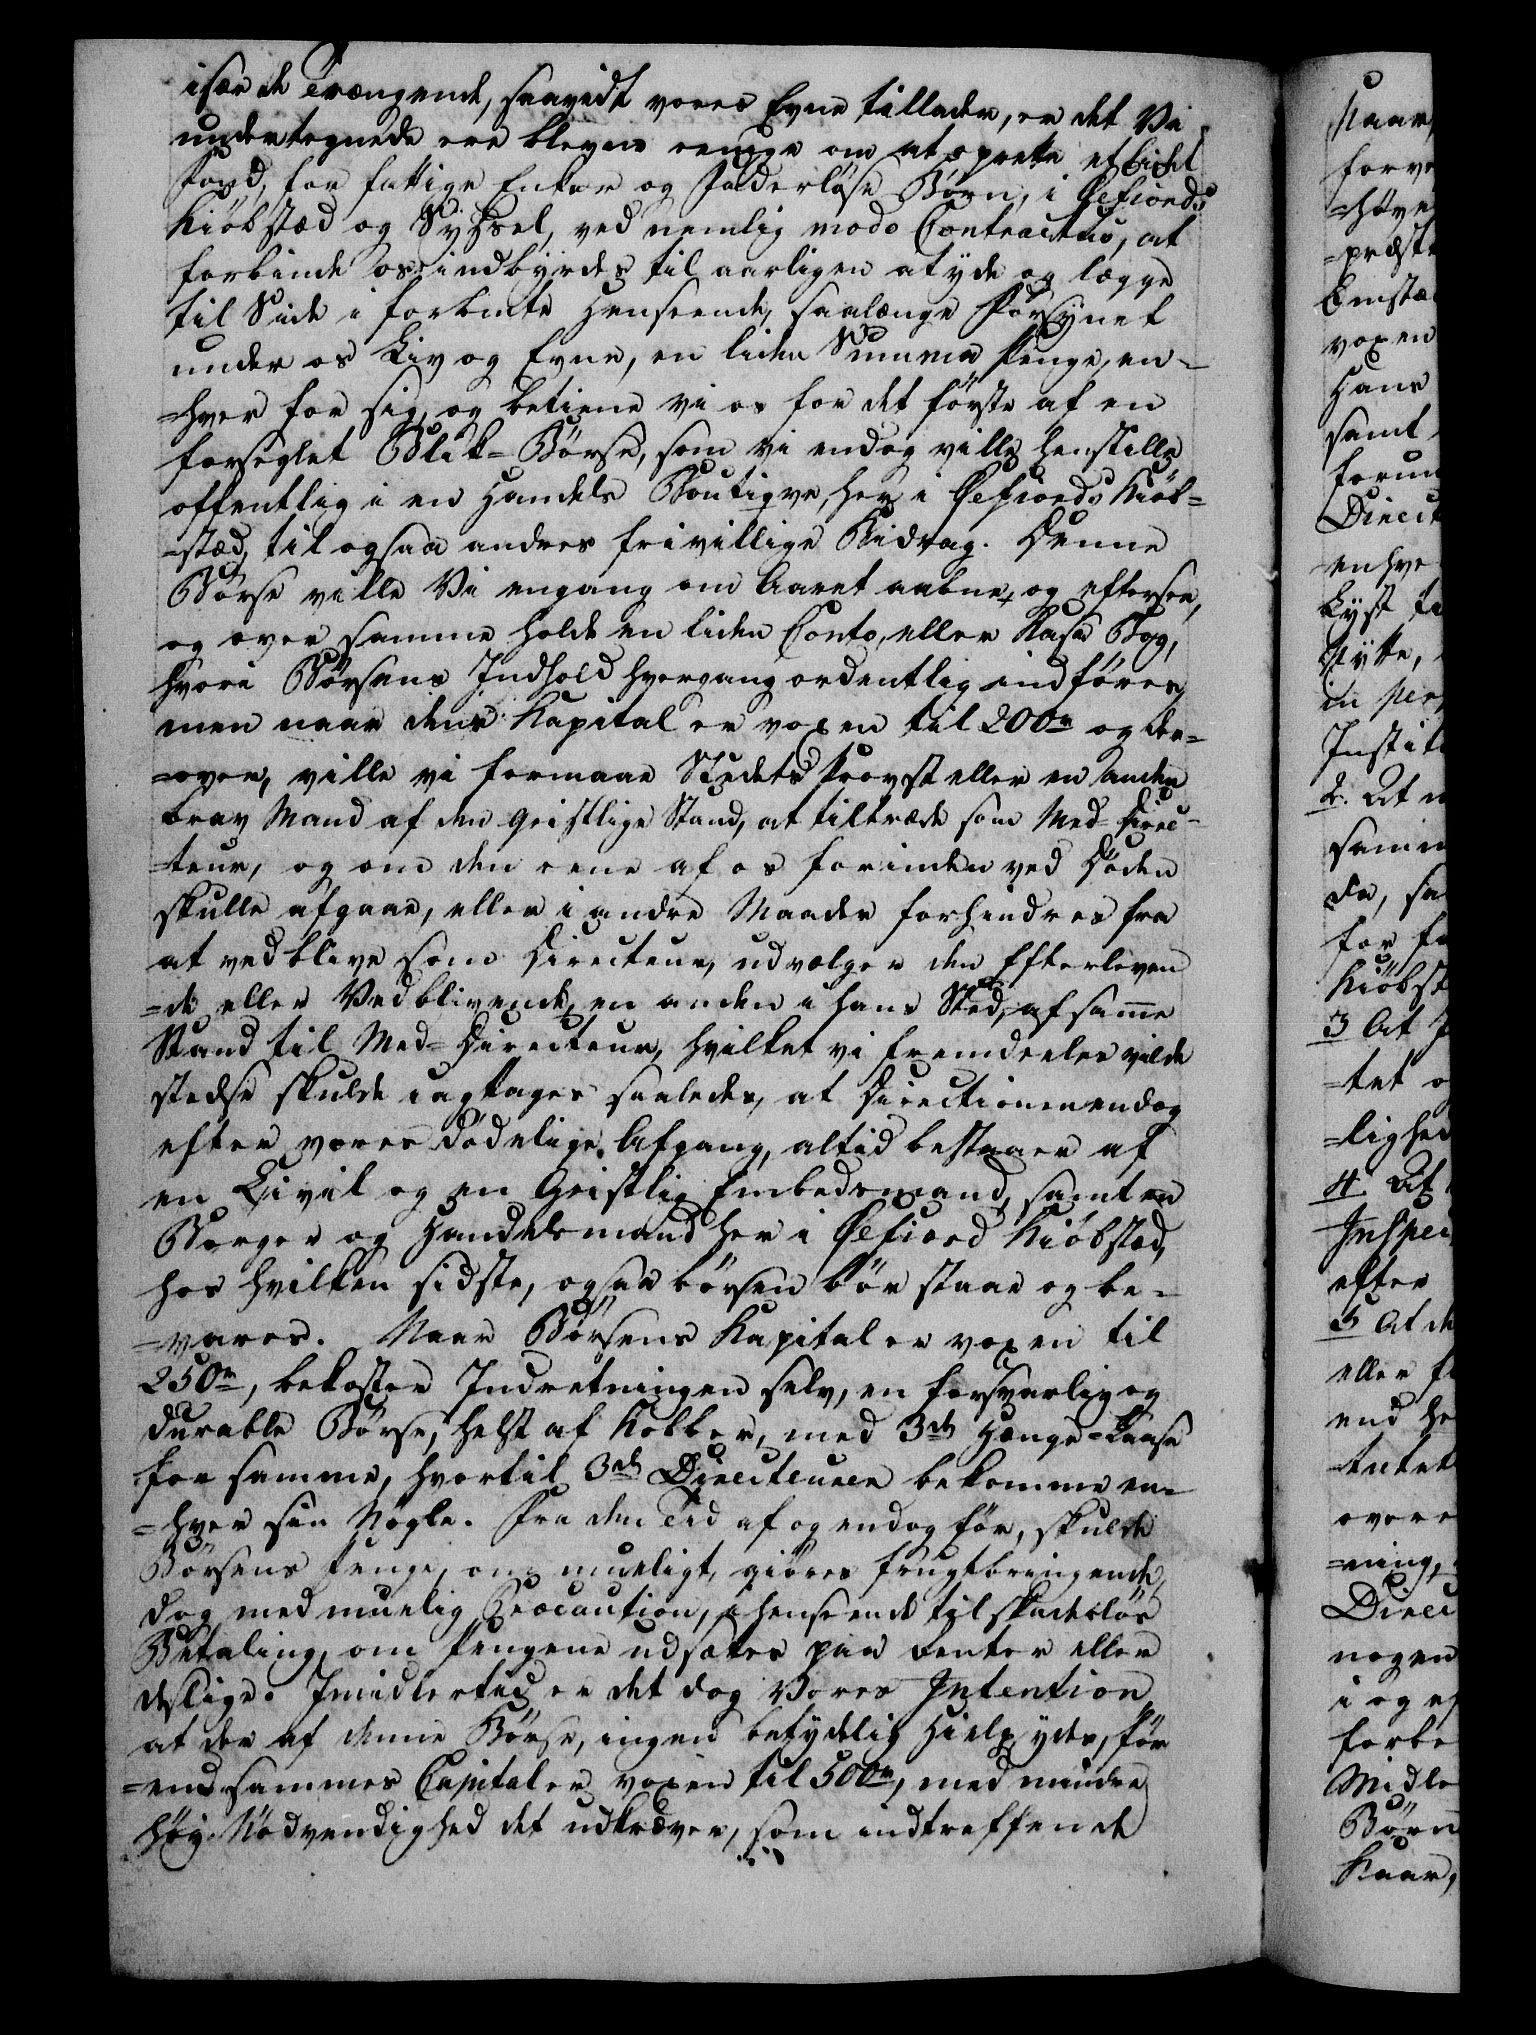 især de Trængende, saavidt vores Evne tillader, er det Vi
undertegnede ere blevne eenige om at oprette et lidet
Fond, for fattige Enker og Faderløse Børn, i Øefiords
Kiöbstæd og Syssel, ved nemlig modo Contractus, at
forbinde os indbyrdes til aarligen at yde og lægge
til Side i forbemte Henseende, saalænge Forsynet
under os Liv og Evne, en liden Summa Penge, en-
=hver for sig, og betiene vi os for det første af en
forseglet Blik-Børse, som vi endog ville henstille
offentlig i en Handels Boutiqve, her i Øefiords Kiöb=
=stæd, til ogsaa andres frivillige Bidrag. Denne
Börse ville Vi engang om Aaret aabne, og eftersee,
og over samme holde en liden Conto, eller Kasse Bog,
hvori Börsens Indhold hvergang ordentlig indføres,
men naar dens Kapital er voxen til 200r og der=
=over, ville vi formaae Stedets Provst eller en anden
brav Mand af den Geistlige Stand, at tiltræde som Med-Direc-
=teur, og om den eene af os forinden ved Döden
skulle afgaae, eller i andre Maader forhindres fra
at vedblive som Directeur, udvælger den Efterleven
=de eller Vedblivende, en anden i hans Sted, af samme
Stand til Med-Directeur, hvilket vi fremdeeles vilde
stedse skulde iagttages saaledes, at Directionen endog
efter vores dödelige Afgang, altid bestaaer af
en Civil og en Geistlig Embedsmand, samt en
Borger og Handelsmand her i Øefiord Kiöbstæd,
hos hvilken sidste, ogsaa börsen bör staae og be-
=vares. Naar Börsens Kapital er voxen til
250r, bekoster Indretningen selv, en forsvarlig og
durable Börse, helst af Kobber, med 3de Hænge-Laase
for samme, hvortil 3de Directeurer bekomme en-
=hver sin Nögle. Fra den Tid af og endog för, skulde
Börsens Penge, om mueligt, giöres frugtbringende,
dog med muelig Præcaution, i henseende til skadeslös
Betaling, om Pengene udsættes paa Renter eller
deslige. Imidlertid er det dog Vores Intention
at der af denne Börse, ingen betydelig Hielp ydes, för
=end sammes Capital er voxen til 500r, med mindre
höy Nödvendighed det udkræver, som indtreffende
Kaar,
forve
=höye
=præste
Embstæ
voxen
Hans
samt
forun
Direct
enhve
Lyst ti
stytte,
in per
Instit
2. At
samm
de, sa
for fa
Kiöbst
3 At
=tet o
=lighed
4. At
Inspec
efter
5 At de
eller f
end he
=tutet
overe
=ning,
Direc
nogen
i og ef
forbe
Midle
Börn
Kaar,